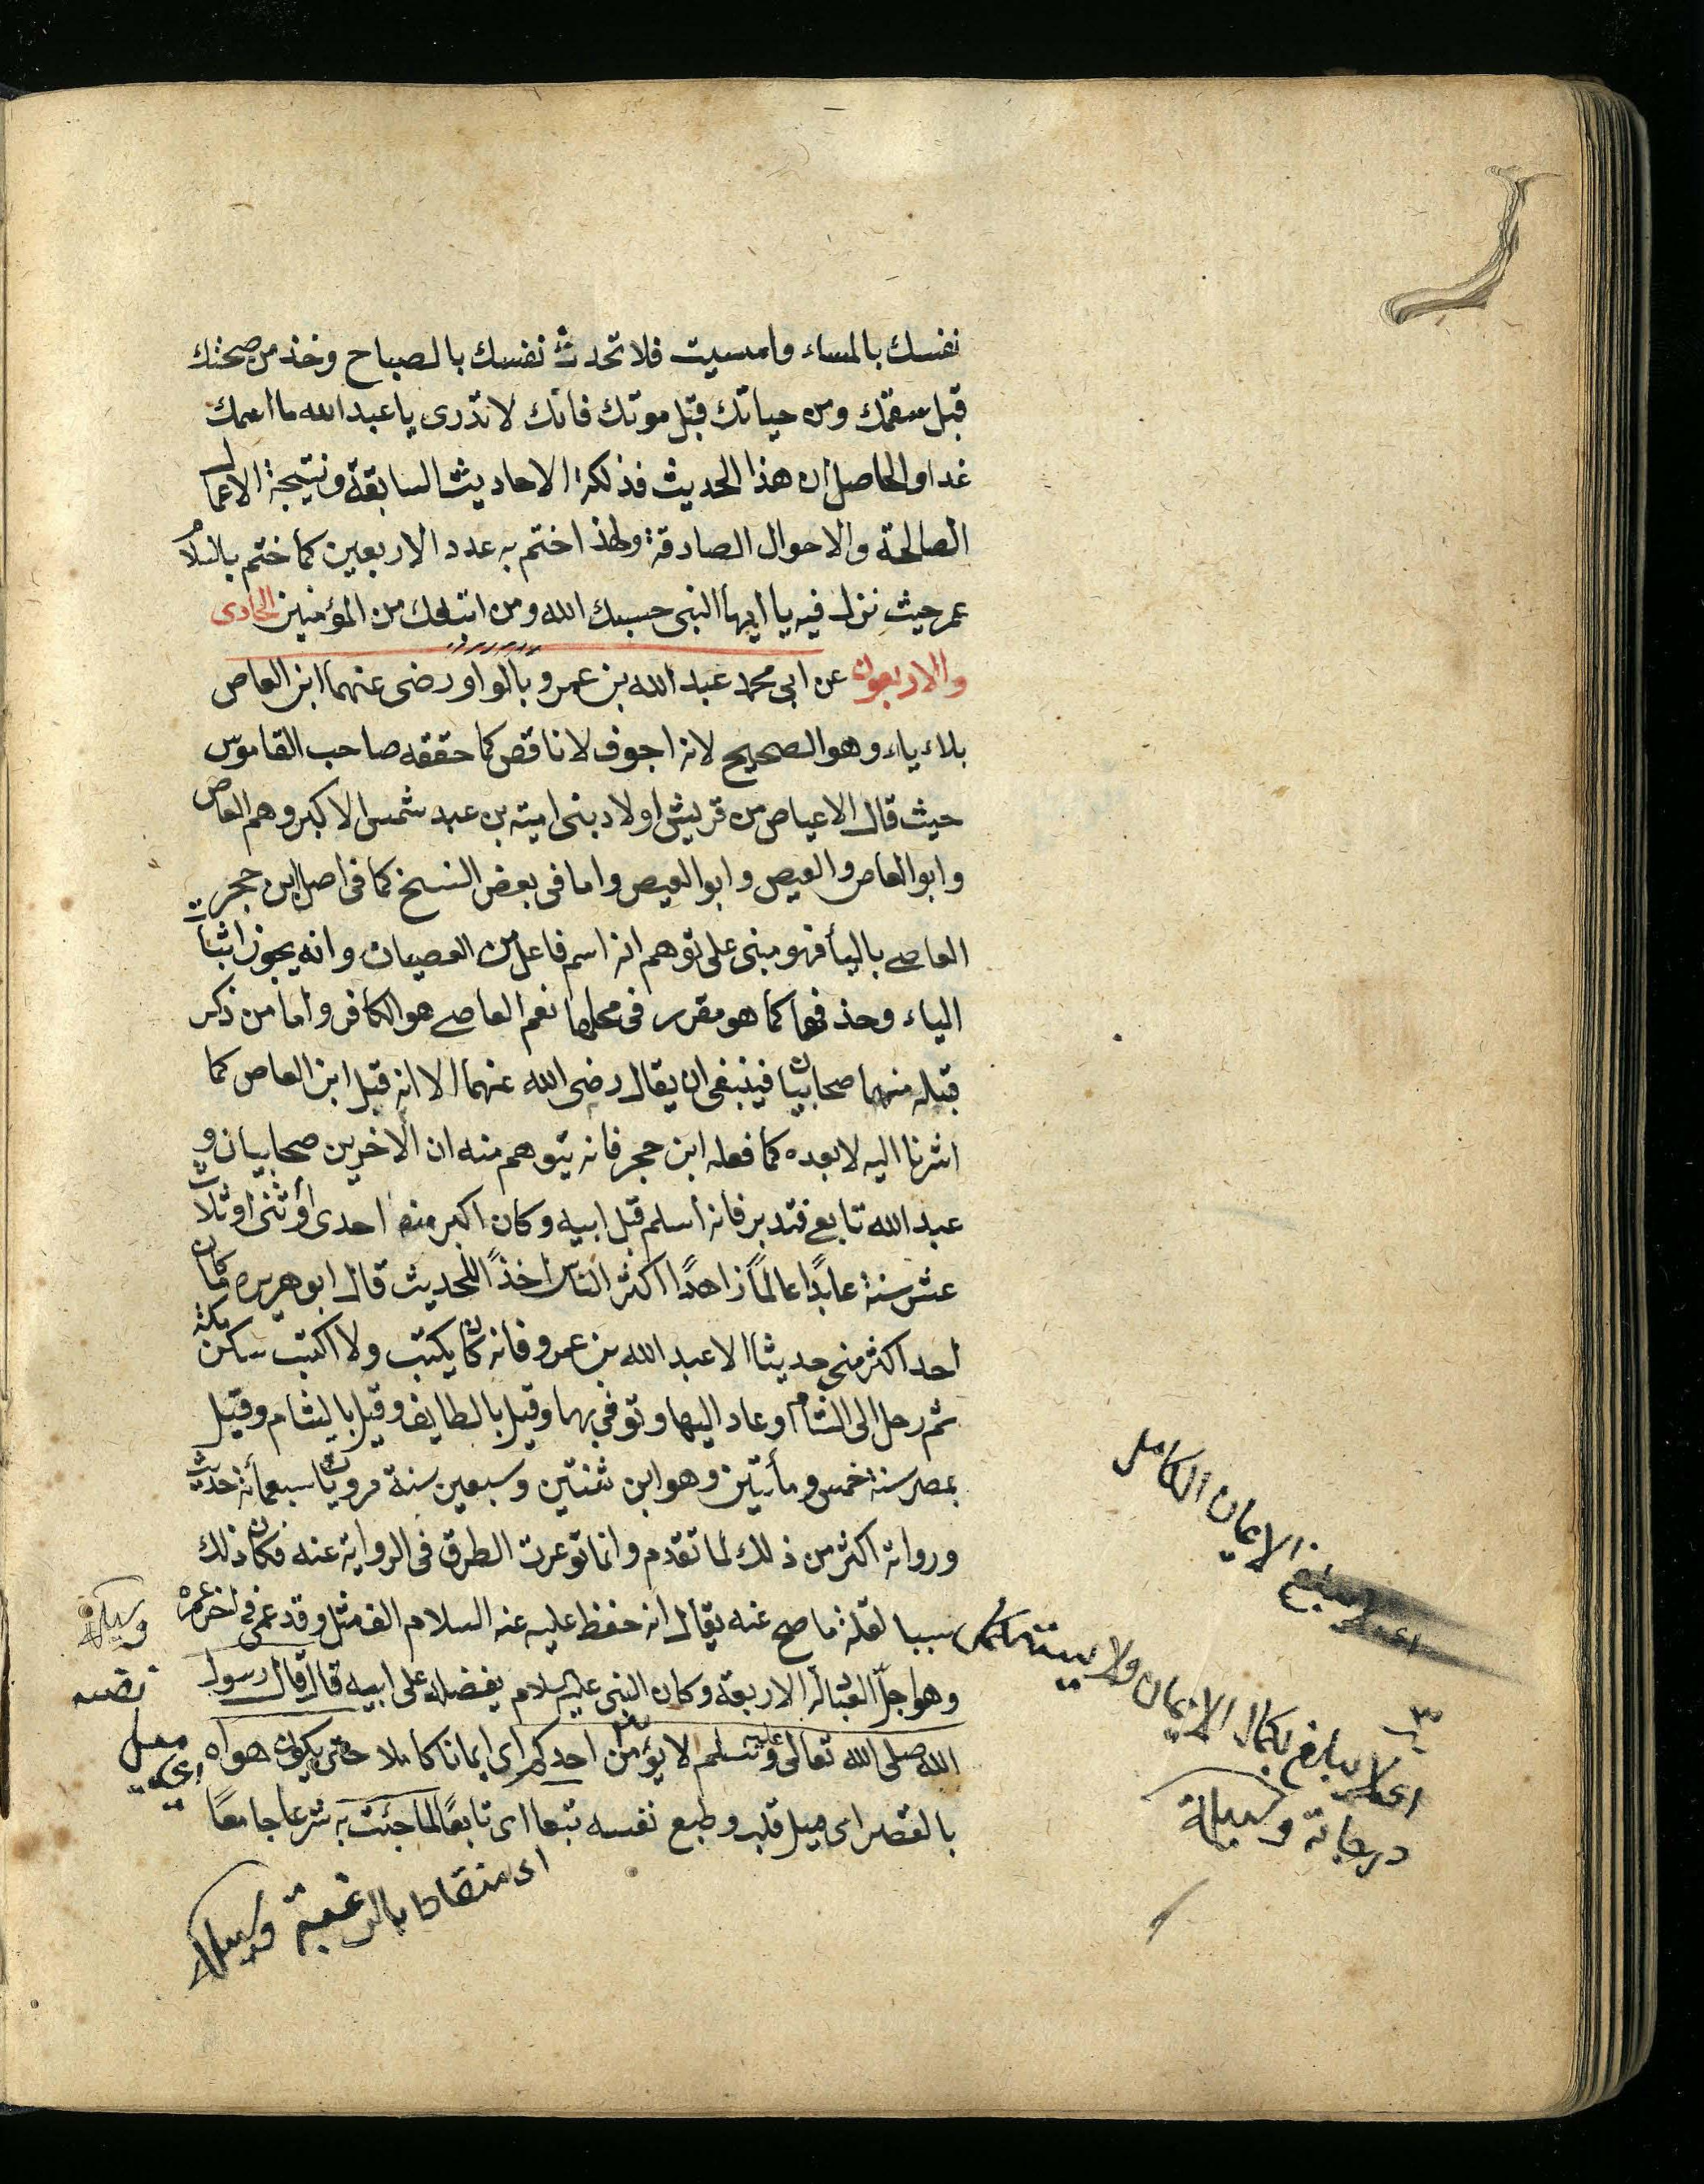 نفسك بالمساء وامسيت فلا تحدث نفسك بالصباح وخذ من صحتك
قبل سقمك ومن حياتك قبل موتك فانك لا تدرى يا عبد الله ما اسمك
غدا والحاصل ان هذا الحديث فذلكة الاحاديث السابقة ونتيجة الاعمال
الصالحة والاحوال الصادقة ولهذا ختم به عدد الاربعين كما ختم
عمر حيث نزل فيه يا ايها النبى حسبك الله ومن اتبعك من المؤمنين الحادى
والاربعون عن ابى محمد عبد الله بن عمرو بالواو رضى عنهما ابن العاص
بلاء ياء وهو الصحيح لانه اجوف لا ناقص كما حققه صاحب القاموس
حيث قال الاعياص من قريش اولاد بنى امية بن عبد شمس الاكبر وهم العاص
وابو العاص والعيص وابو العيص واما فى بعض النسخ كما فى اصل ابن حجر
العاصى بالياء فهو مبنى على توهم انه اسم فاعل من العصيان وانه يجوز اثبات
الياء وحذفها كما هو مقرر فى محلها نعم العاصى هو الكافر واما من ذكر
قبله منهما صحابيان فينبغى ان يقال رضى الله عنهما الا انه قبل ابن العاص كما
اشرنا اليه لا بعده كما فعله ابن حجر فانه يتوهم منه ان الاخرين صحابيان و
عبد الله تابعى فتدبر فانه اسلم قبل ابيه وكان اكبر منه احدى أو ثنى او ثلاث
عشر سنة عابدًا عالمًا زاهدًا اكثر الناس اخذًا للحديث قال ابو هريره ما كان
احد اكثر منى حديثا الا عبد الله بن عمرو فانه كان يكتب ولا اكتب سكن مكة
ثم رحل الى الشام وعاد اليها وتوفى بها وقيل بالطايف وقيل بالشام وقيل
بمصر سنة خمس ومأتين وهو ابن ثنتين وسبعين سنة مروياته سبعمائة حديث
ورواته اكثر من ذلك لما تقدم وانما توعرت الطرق فى الرواية عنه فكان ذلك
سببا لقلة ما صح عنه يقال انه حفظ عليه عنه السلام الف مثل وقد عمى فى اخر عمره
وهو اجلّ العبادلة الاربعة وكان النبى عليه السلام يفضله على ابيه قال قال رسول
الله صلى الله تعالى عليه وسلم لا يؤمن احدكم اى ايمانا كاملا حتى يكون هواه
بالقصر اى ميل قلبه وطبع نفسه تبعا اى تابعًا لما جئت به شرعا جامعًا
اى منقادا بالرغبة وسيلة
اى ميل
نفسه
وسيلة
اى لا يبلغ الايمان الكامل
اى لا يبلغ بكمال الايمان ولا يستكمل
درجاته وسيلة